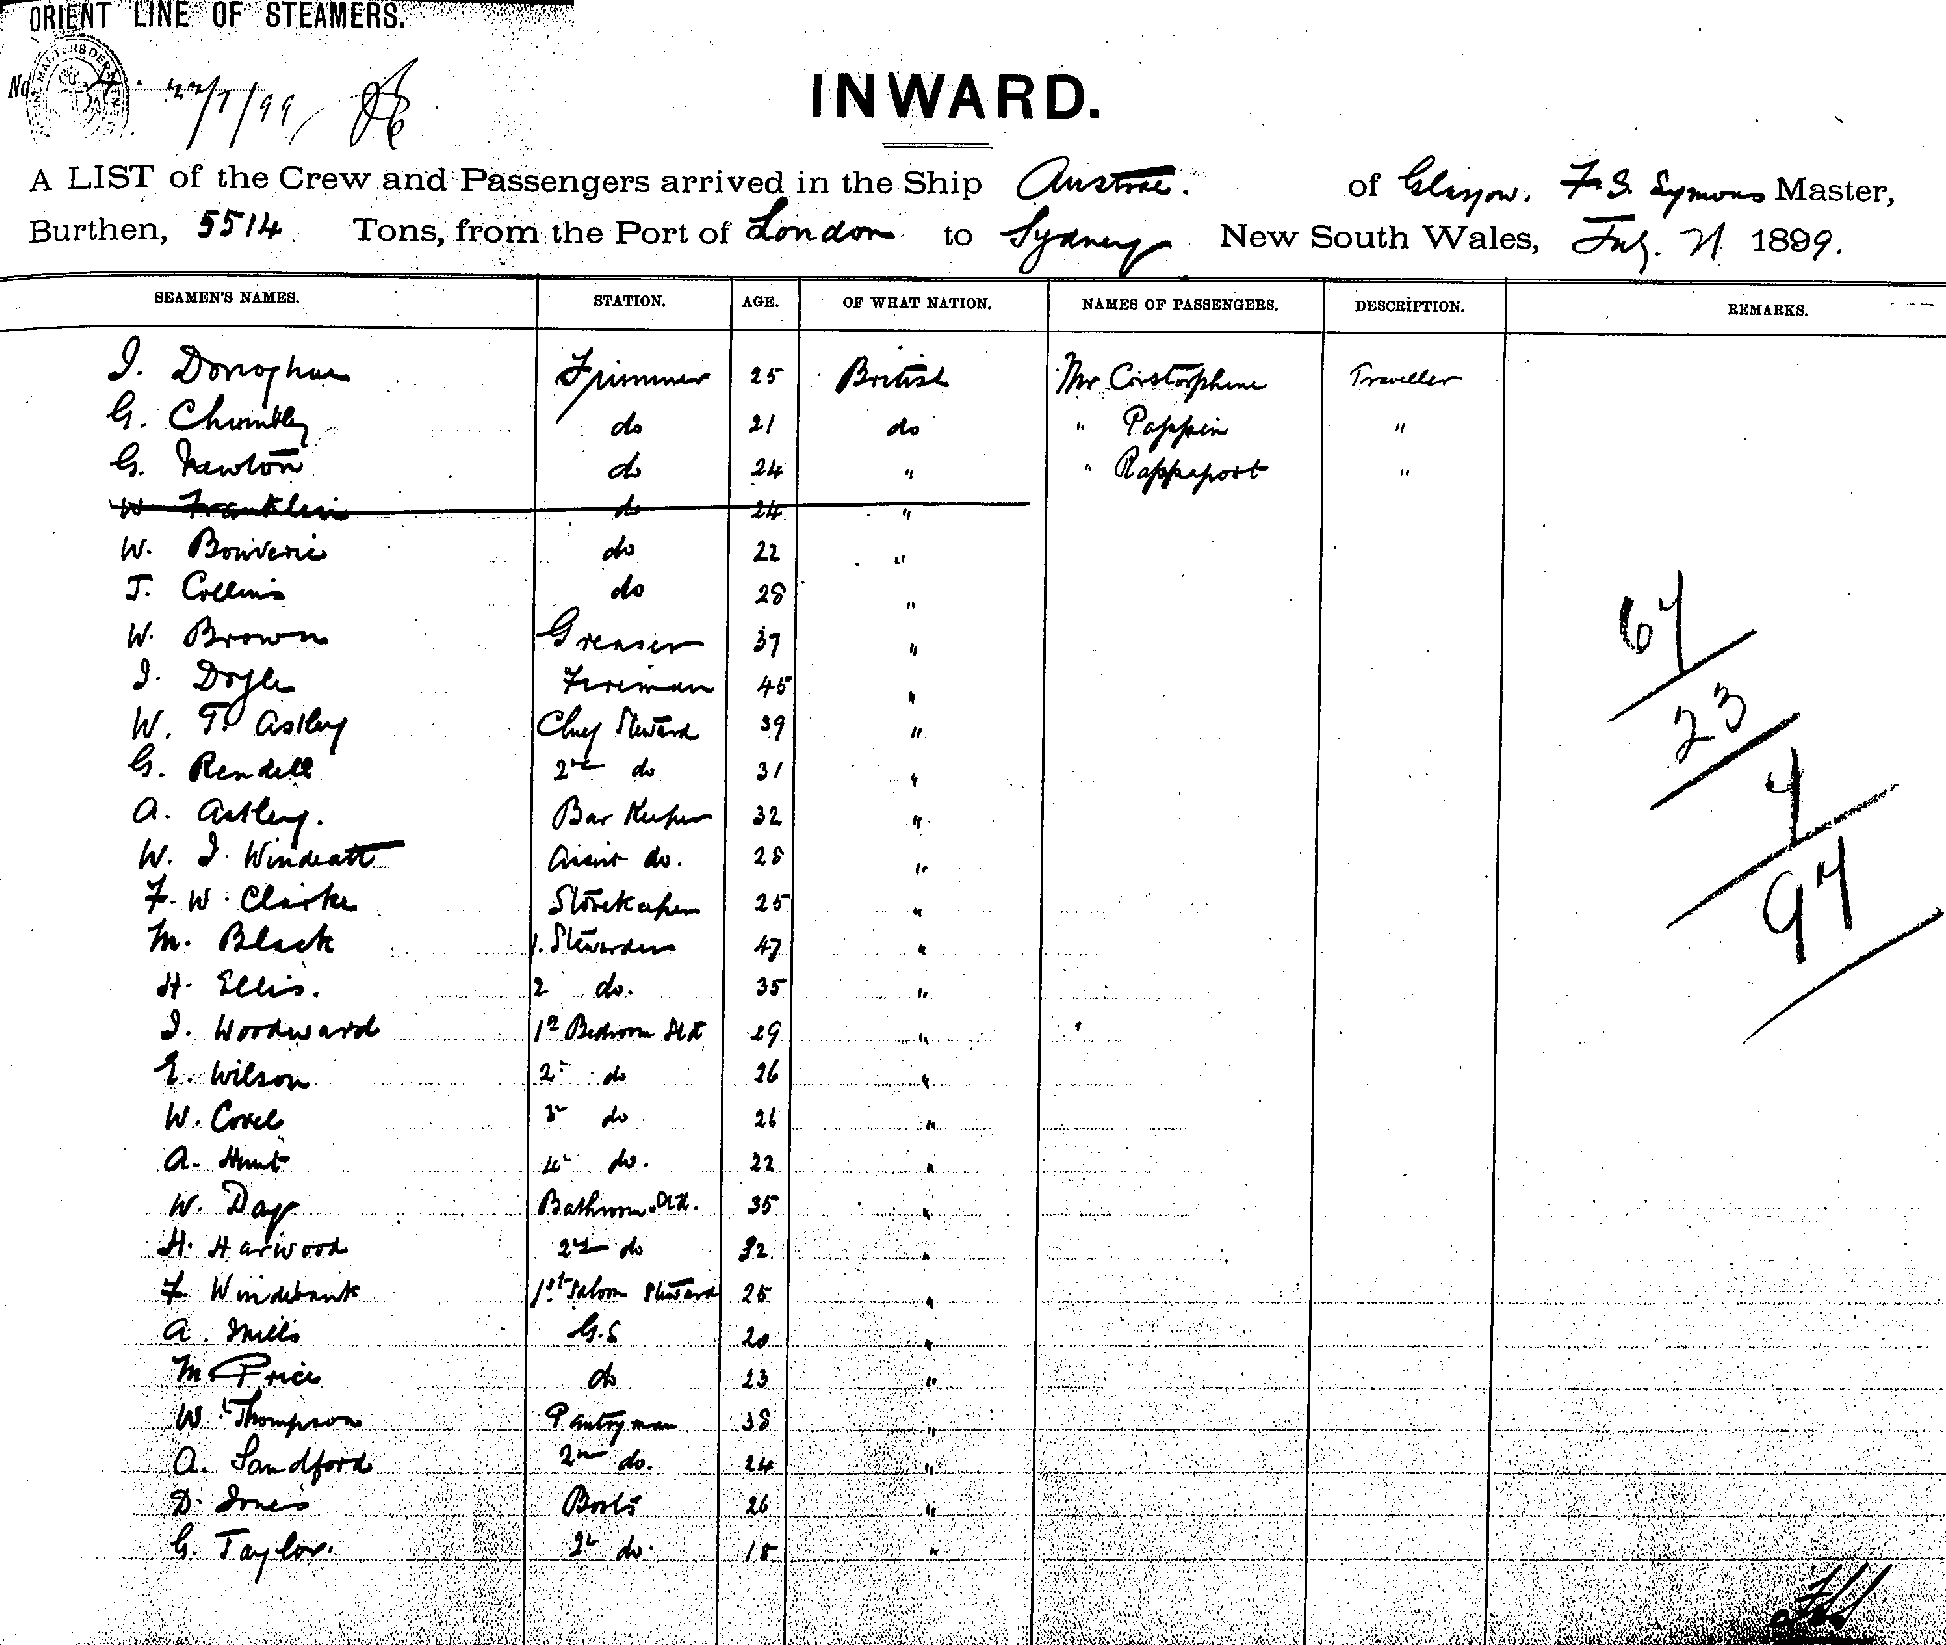 ORIENT LINE OF STEAMERS.
No. 22/7/99
INWARD.
A LIST of the Crew and Passengers arrived in the Ship Austral. of Glasgow. F. S. Symons Master,
Burthen, 5514 Tons, from the Port of London to Sydney New South Wales, July. 21 1899.
SEAMEN'S NAMES. STATION. AGE. OF WHAT NATION. NAMES OF PASSENGERS. DESCRIPTION. REMARKS.
J. Donoghue Trimmer 25 British Mr Corstorphine Traveller
G. Chumbley do 21 do " Pappin "
G. Newton do 24 " " Rappaport "
W Franklin do 24 "
W. Bouverie do 22 "
J. Collins do 28 "
W. Brown Greaser 37 "
J. Doyle Fireman 45 "
W. T. Astley Chief Steward 39 "
G. Rendell 2nd do 31 "
A. Astley. Bar Keeper 32 "
W. J. Windeatt Assist do. 28 "
F. W. Clarke Storekeeper 25 "
M. Black 1. Stewardess 47 "
H. Ellis. 2 do. 35 "
J. Woodward 1st Bedroom Std 29 "
E. Wilson 2 do 26 "
W. 3 do 26 "
A. Hunt 4 do. 22 "
W. Day Bathroom Std. 35 "
H. Harwood 2nd do 32 "
F Windebank 1st Saloon Steward 25 "
A. Mills G.S 20 "
M. Price do 23 "
W. Thompson Pantryman 38 "
A. Sandford 2nd do. 24 "
D. Jones Boots 26 "
G. Taylor. 2 do. 18 "
67
23
4
94